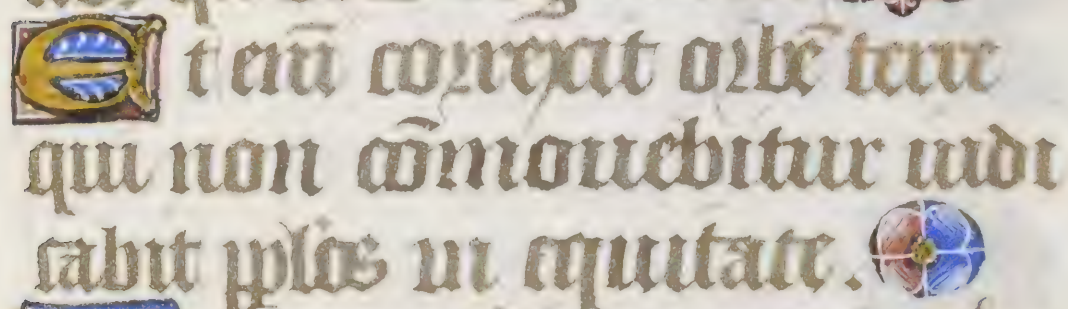 Et eni̅ correxit orbe̅ terre
qui non co̅mouebitur iudi
cabit pp̅los in equitate.